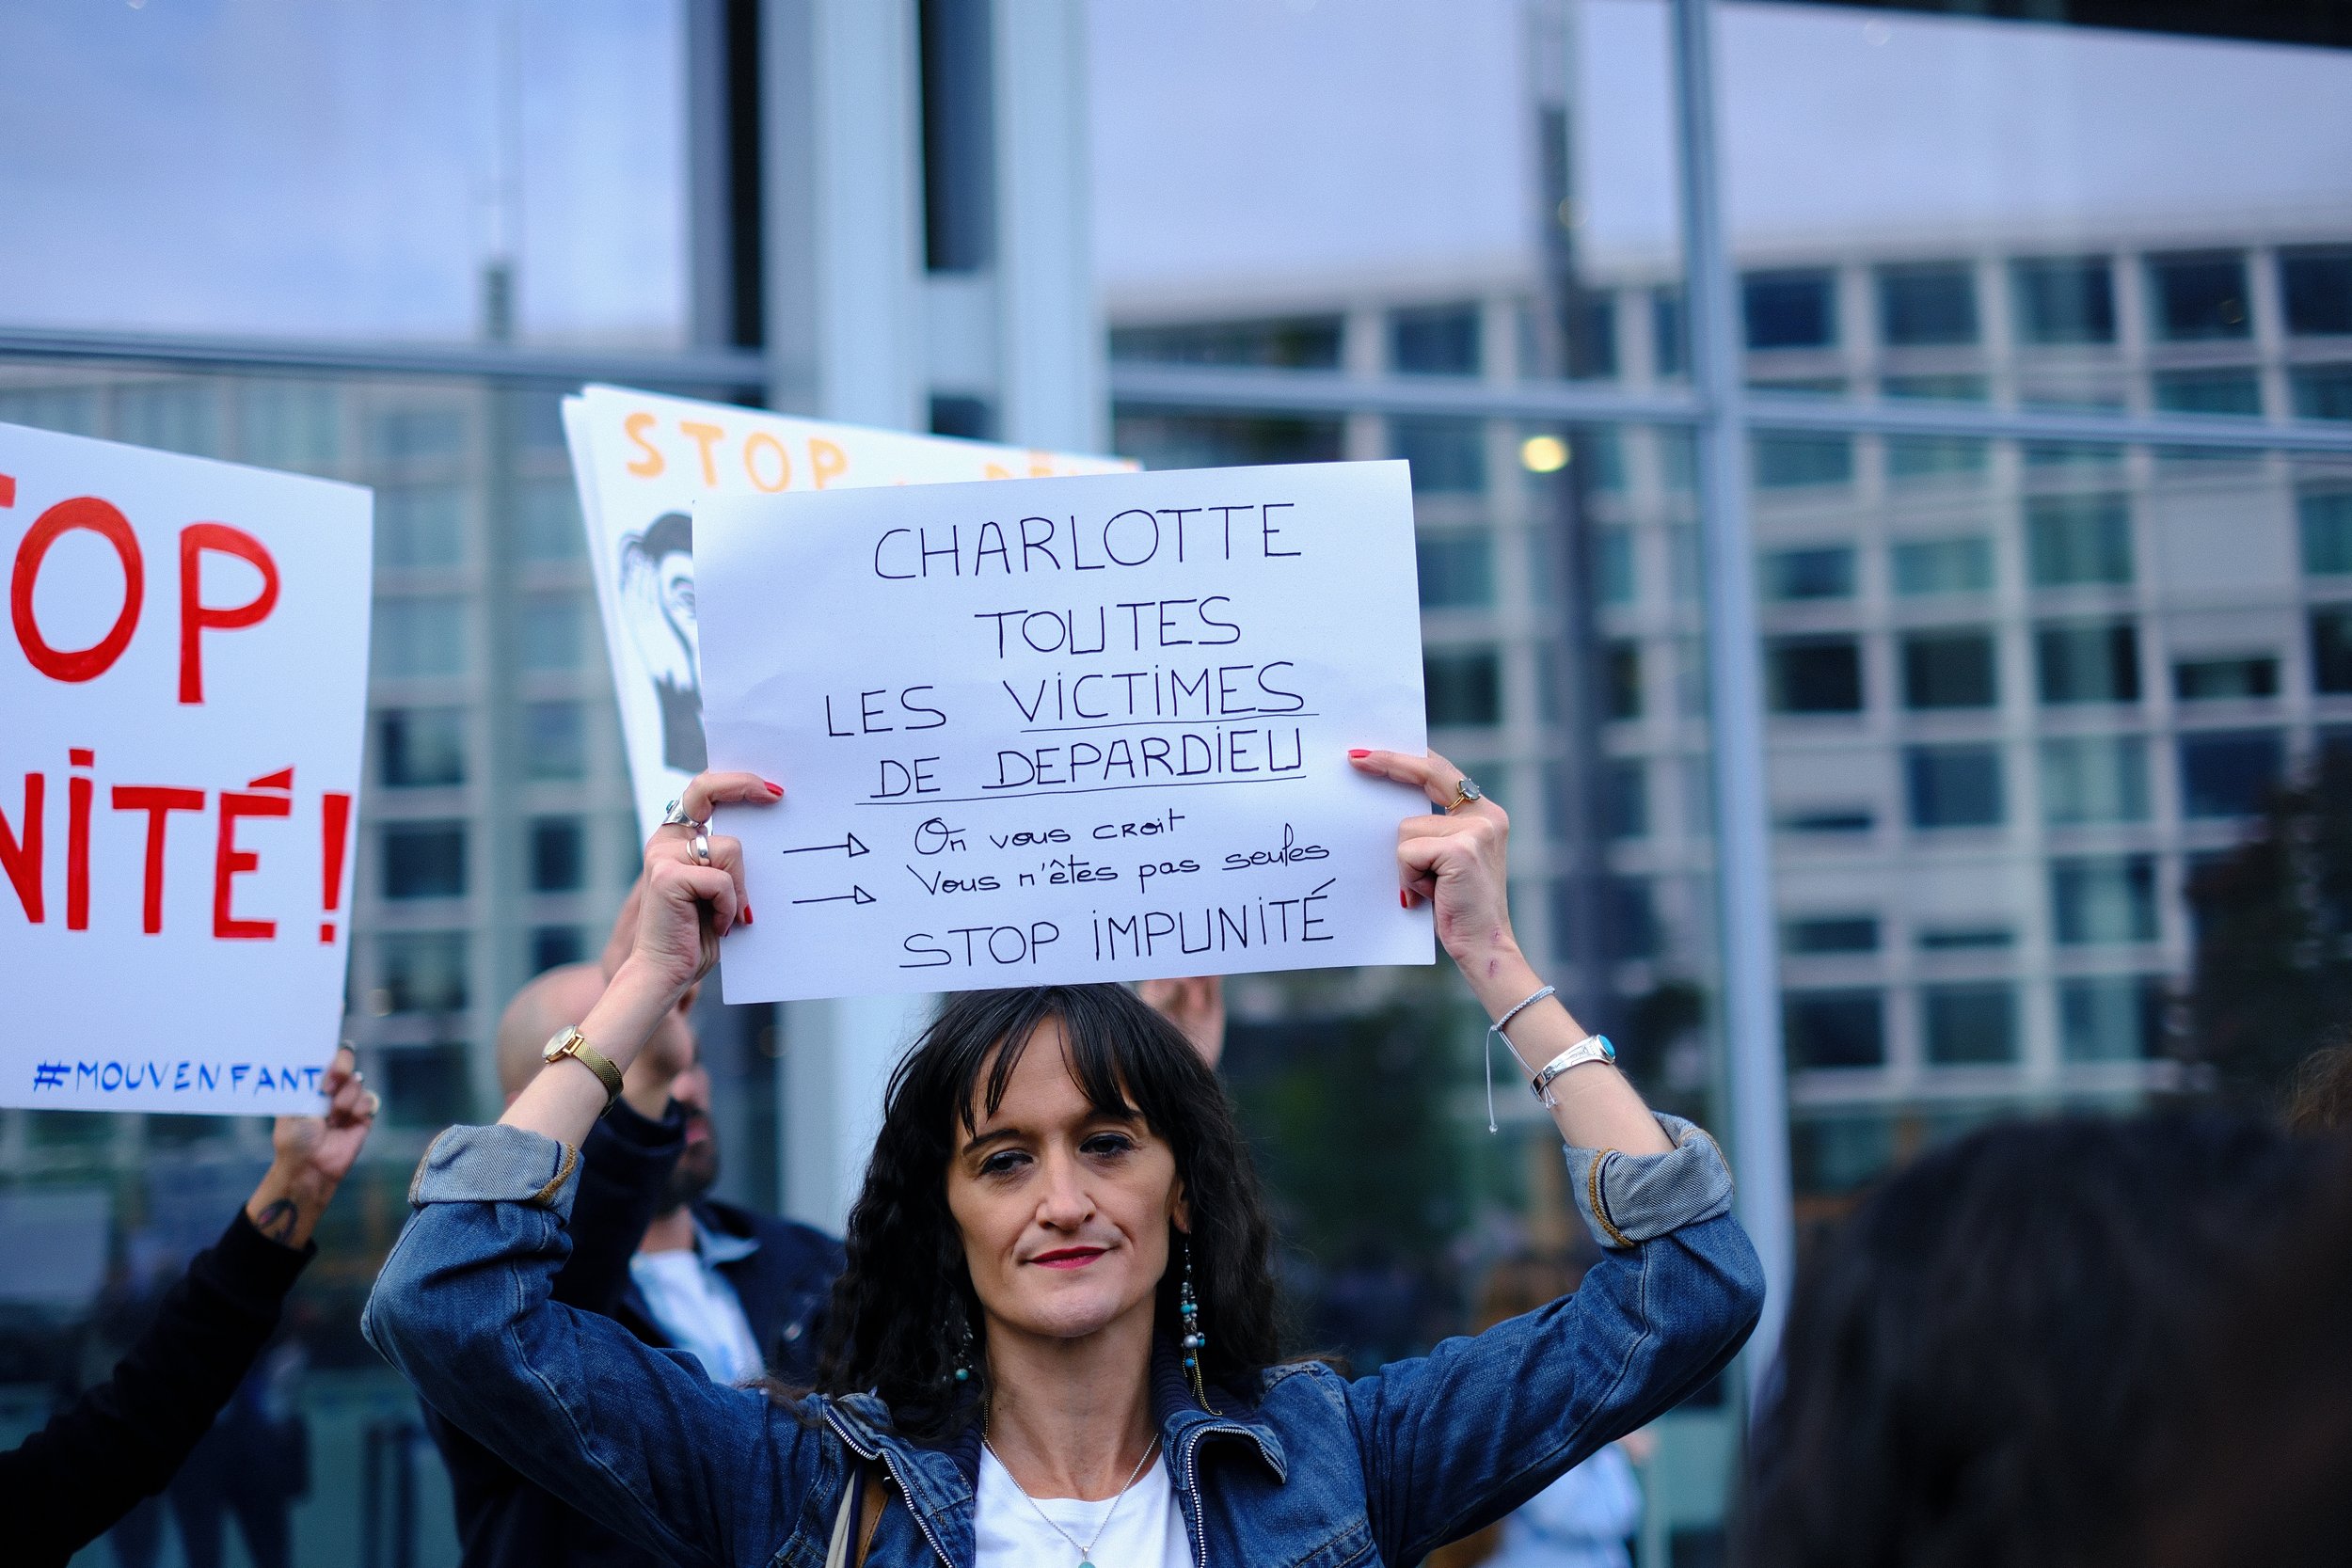 STOP
TOP
NiTÉ!
#MOUVENFANT
CHARLOTTE
TOUTES
LES VICTiMES
DE DEPARDiEU
→ On vous croit
→ Vous n'êtes pas seules
STOP iMPUNiTÉ